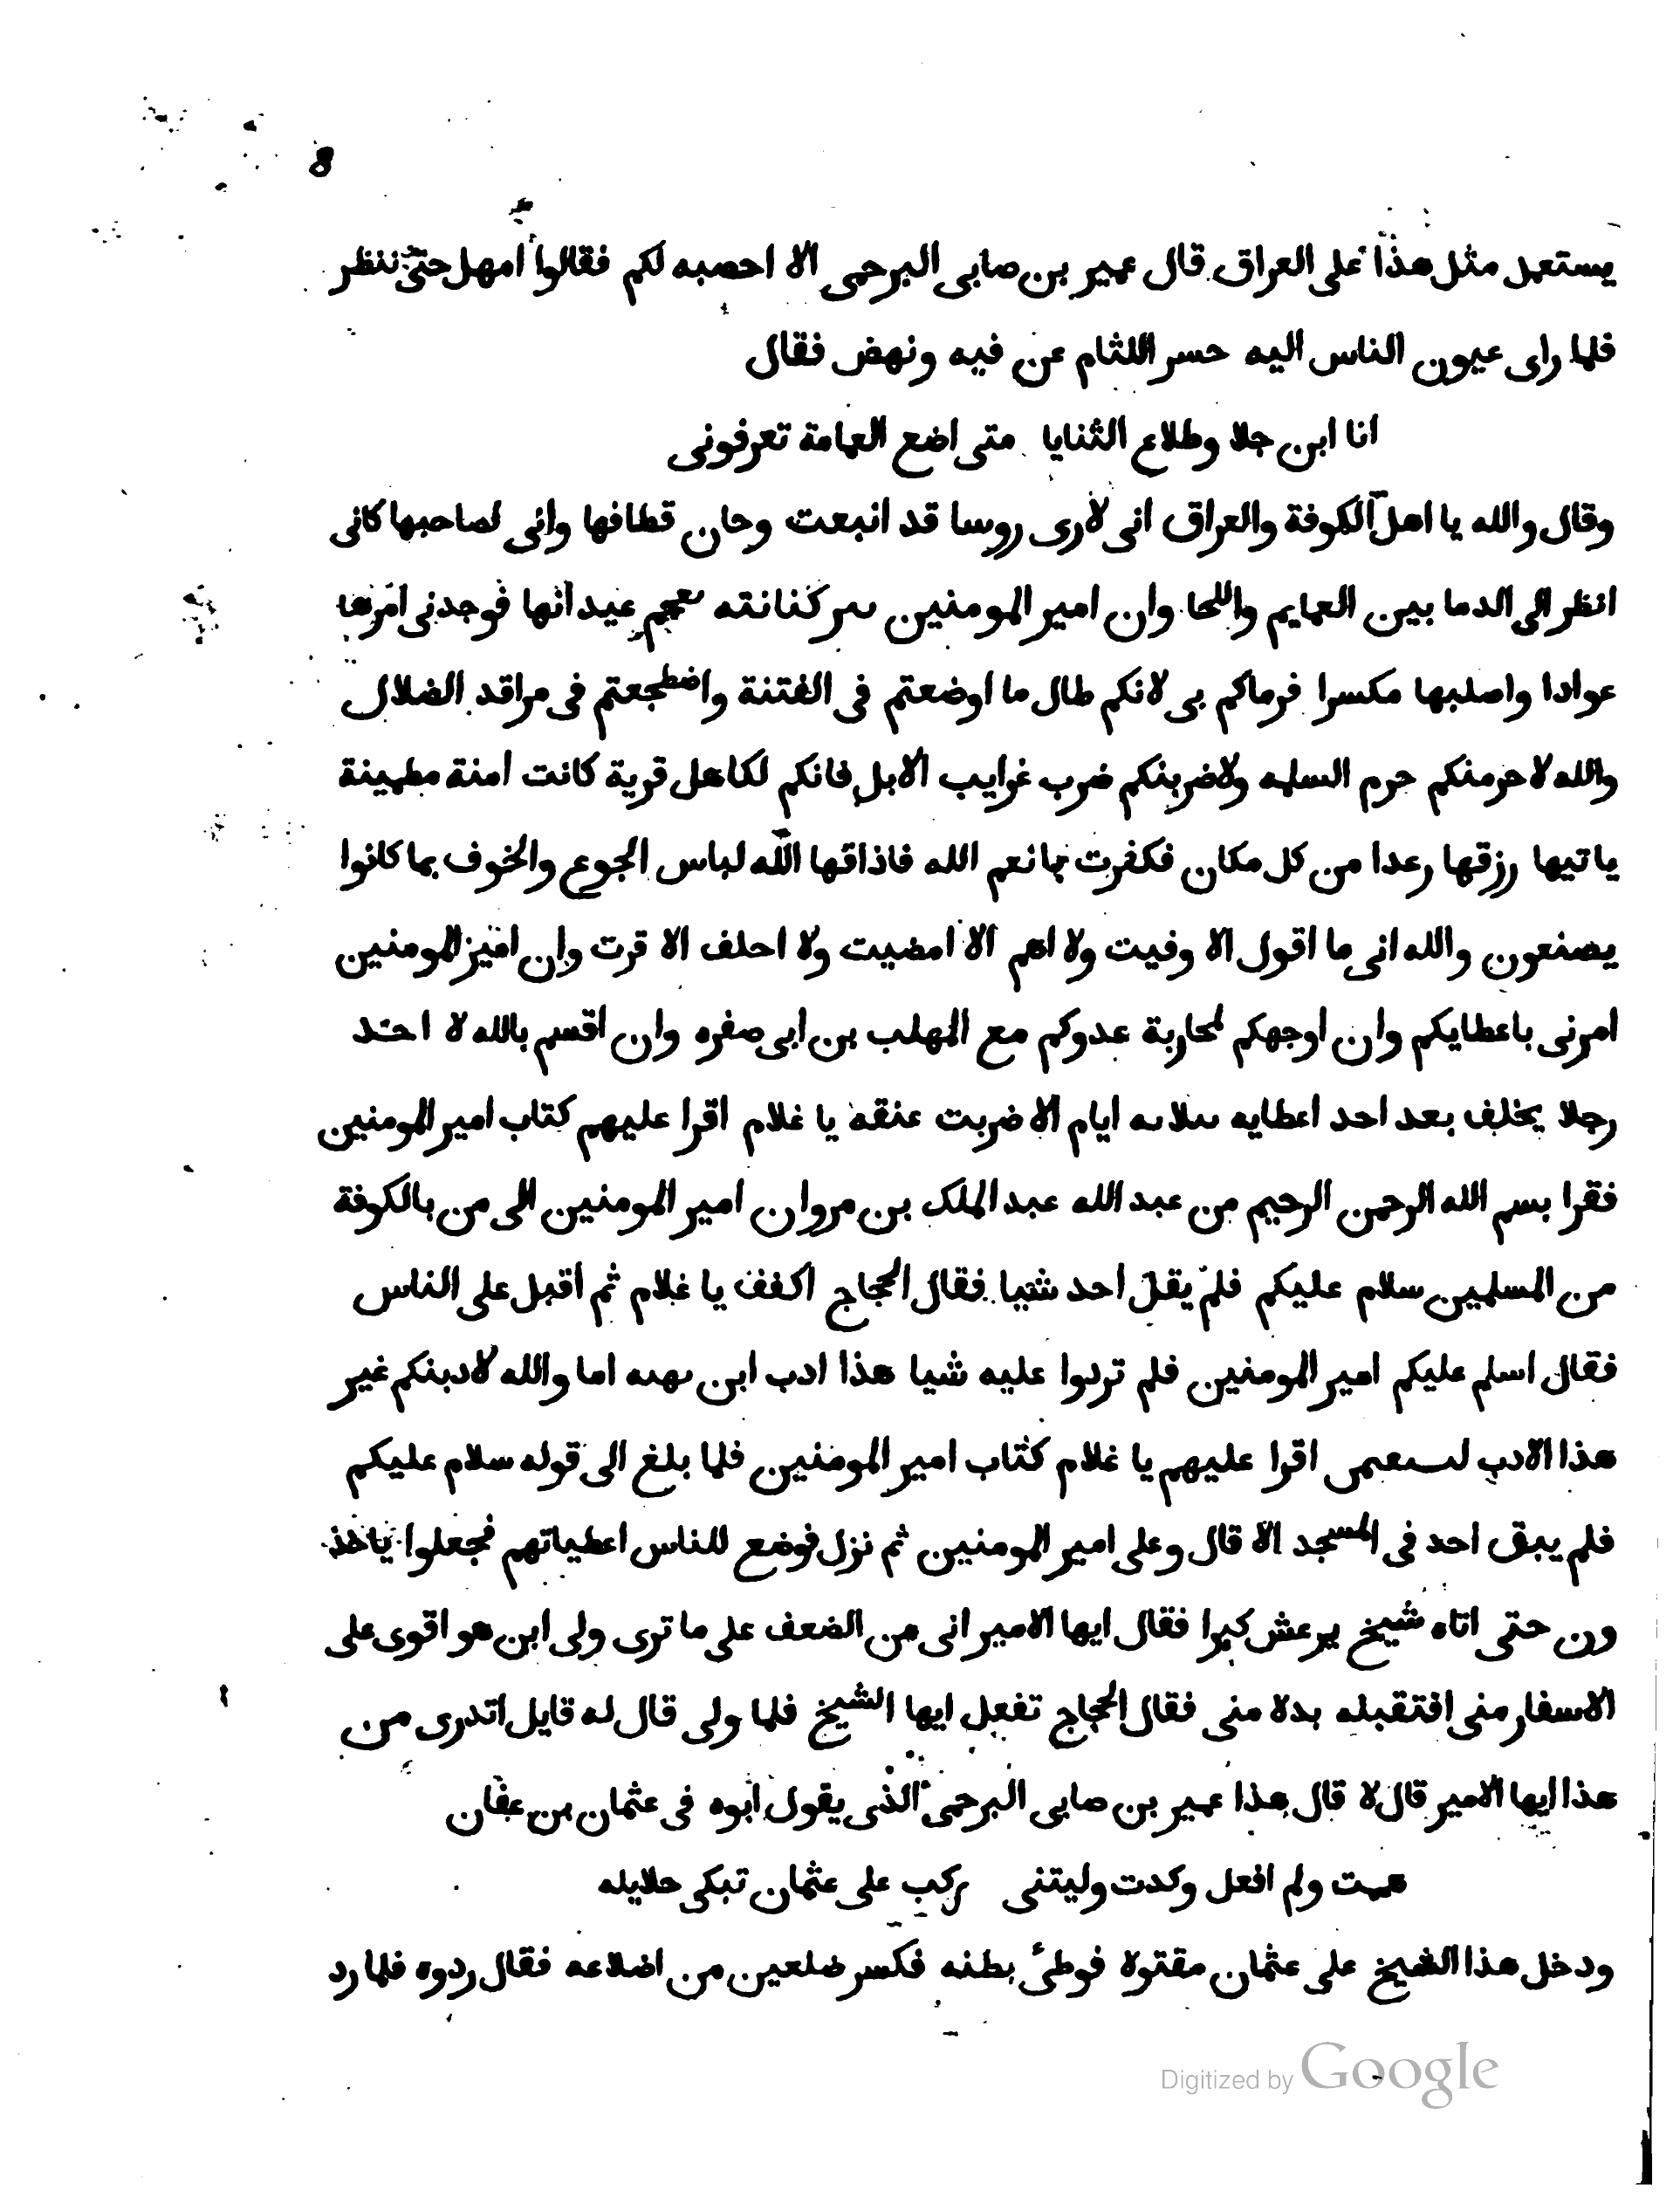 8
يستعمل مثل هذا على العراق قال عمير بن صابى البرحمى الا احصبه لكم فقالوا امهل حتى ننظر
فلما راى عيون الناس اليه حسر اللثام عن فيه ونهض فقال
انا ابن جلا وطلاع الثنايا متى اضع العمامة تعرفونى
وقال والله يا اهل الكوفة والعراق انى لارى روسا قد انبعت وحان قطافها وانى لصاحبها كانى
انظر الى الدما بين العمايم واللحا وان امير المومنين نىر كنانته عيدانها فوجدنى امرها
عوادا واصلبها مكسرا فرماكم بى لانكم طال ما اوضعتم فى الفتنة واضطجعتم فى مراقد الضلال
والله لاحزمنكم حزم السلمه ولاضربنكم ضرب غرايب الابل فانكم لكاهل قرية كانت امنة مطمينة
ياتيها رزقها رعدا من كل مكان فكفرت بانعم الله فاذاقها الله لباس الجوع والخوف بما كانوا
يصنعون والله انى ما اقول الا وفيت ولا اهم الا امضيت ولا احلف الا قرت وان امير المومنين
امرنى باعطايكم وان اوجهكم لمحاربة عدوكم مع المهلب بن ابى صفره وان اقسم بالله لا احد
رجلا يخلف بعد احد اعطايه ىىلاىه ايام الا ضربت عنقه يا غلام اقرا عليهم كتاب امير المومنين
فقرا بسم الله الرحمن الرحيم من عبد الله عبد الملك بن مروان امير المومنين الى من بالكوفة
من المسلمين سلام عليكم فلم يقل احد شيا فقال الحجاج اكفف يا غلام ثم اقبل على الناس
فقال اسلم عليكم امير المومنين فلم تردوا عليه شيا هذا ادب ابن ىهىه اما والله لادبنكم غير
هذا الادب اقرا عليهم يا غلام كتاب امير المومنين فلما بلغ الى قوله سلام عليكم
فلم يبق احد فى المسجد الا قال وعلى امير المومنين ثم نزل فوضع للناس اعطياتهم فجعلوا ياخذ
ون حتى اتاه شيخ يرعش كبرا فقال ايها الامير انى من الضعف على ما ترى ولى ابن هو اقوى على
الاسفار منى افتقبله بدلا منى فقال الحجاج تفعل ايها الشيخ فلما ولى قال له قايل اتدرى من
هذا ايها الامير قال لا قال هذا عمير بن صابى البرحمى الذى يقول ابوه فى عثمان بن عفان
هممت ولم افعل وكدت وليتنى ركب على عثمان تبكى حلايله
ودخل هذا الشيخ على عثمان مقتولا فوطئ بطنه فكسر ضلعين من اضلاعه فقال ردوه فلما رد
Digitized by Google